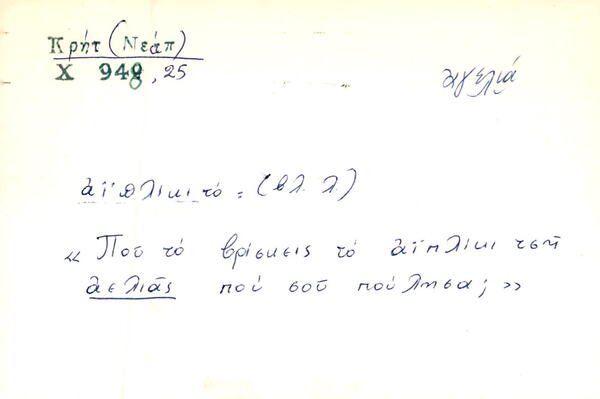 Κρήτ (Νεάπ)
Χ 948, 25
ἀγελιά
ἀϊπλίκι τό = (βλ. λ)
« Ποῦ τό βρίσκεις τό ἀϊπλίκι τσῆ
ἀελιᾶς πού σοῦ πούλησα; »